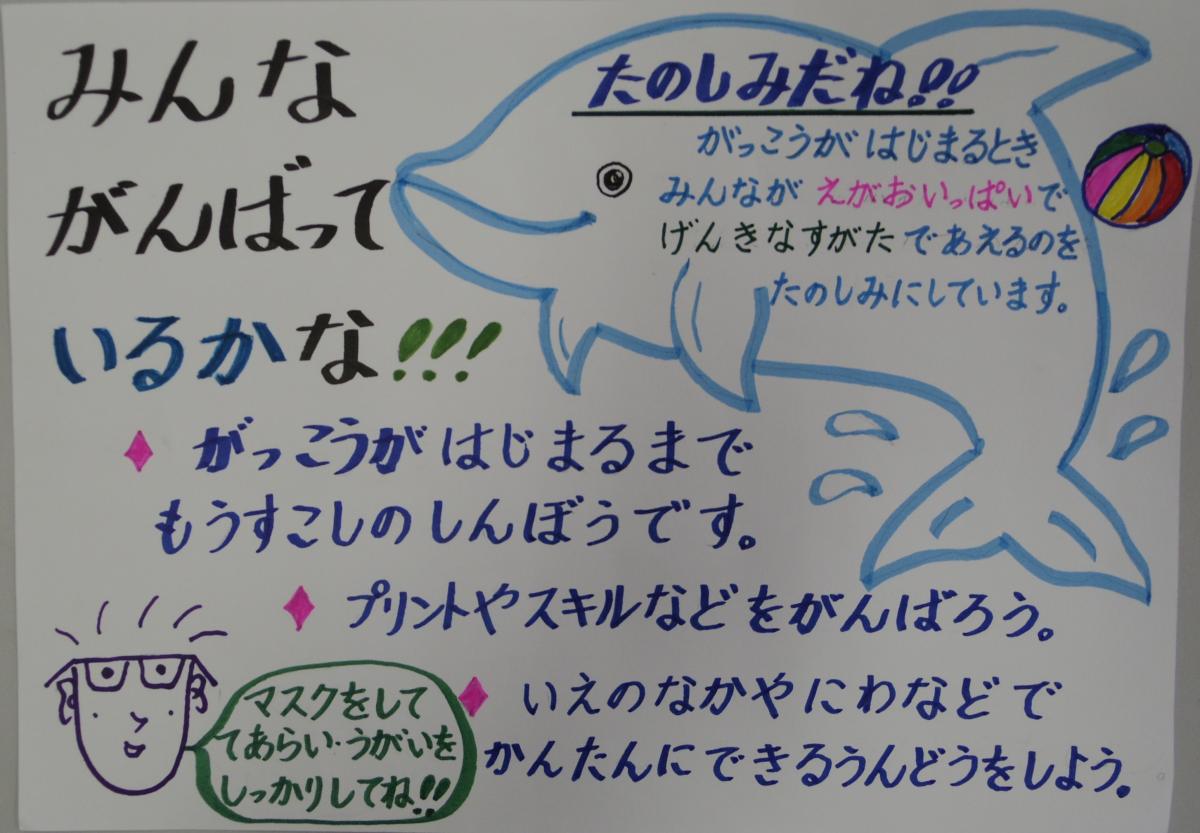 みんな
がんばって
いるかな!!!
たのしみだね!!
がっこうがはじまるとき
みんながえがおいっぱいで
げんきなすがたであえるのを
たのしみにしています。
がっこうがはじまるまで
もうすこしのしんぼうです。
プリントやスキルなどをがんばろう。
いえのなかやにわなどで
かんたんにできるうんどうをしよう。
マスクをして
てあらい・うがいを
しっかりしてね!!